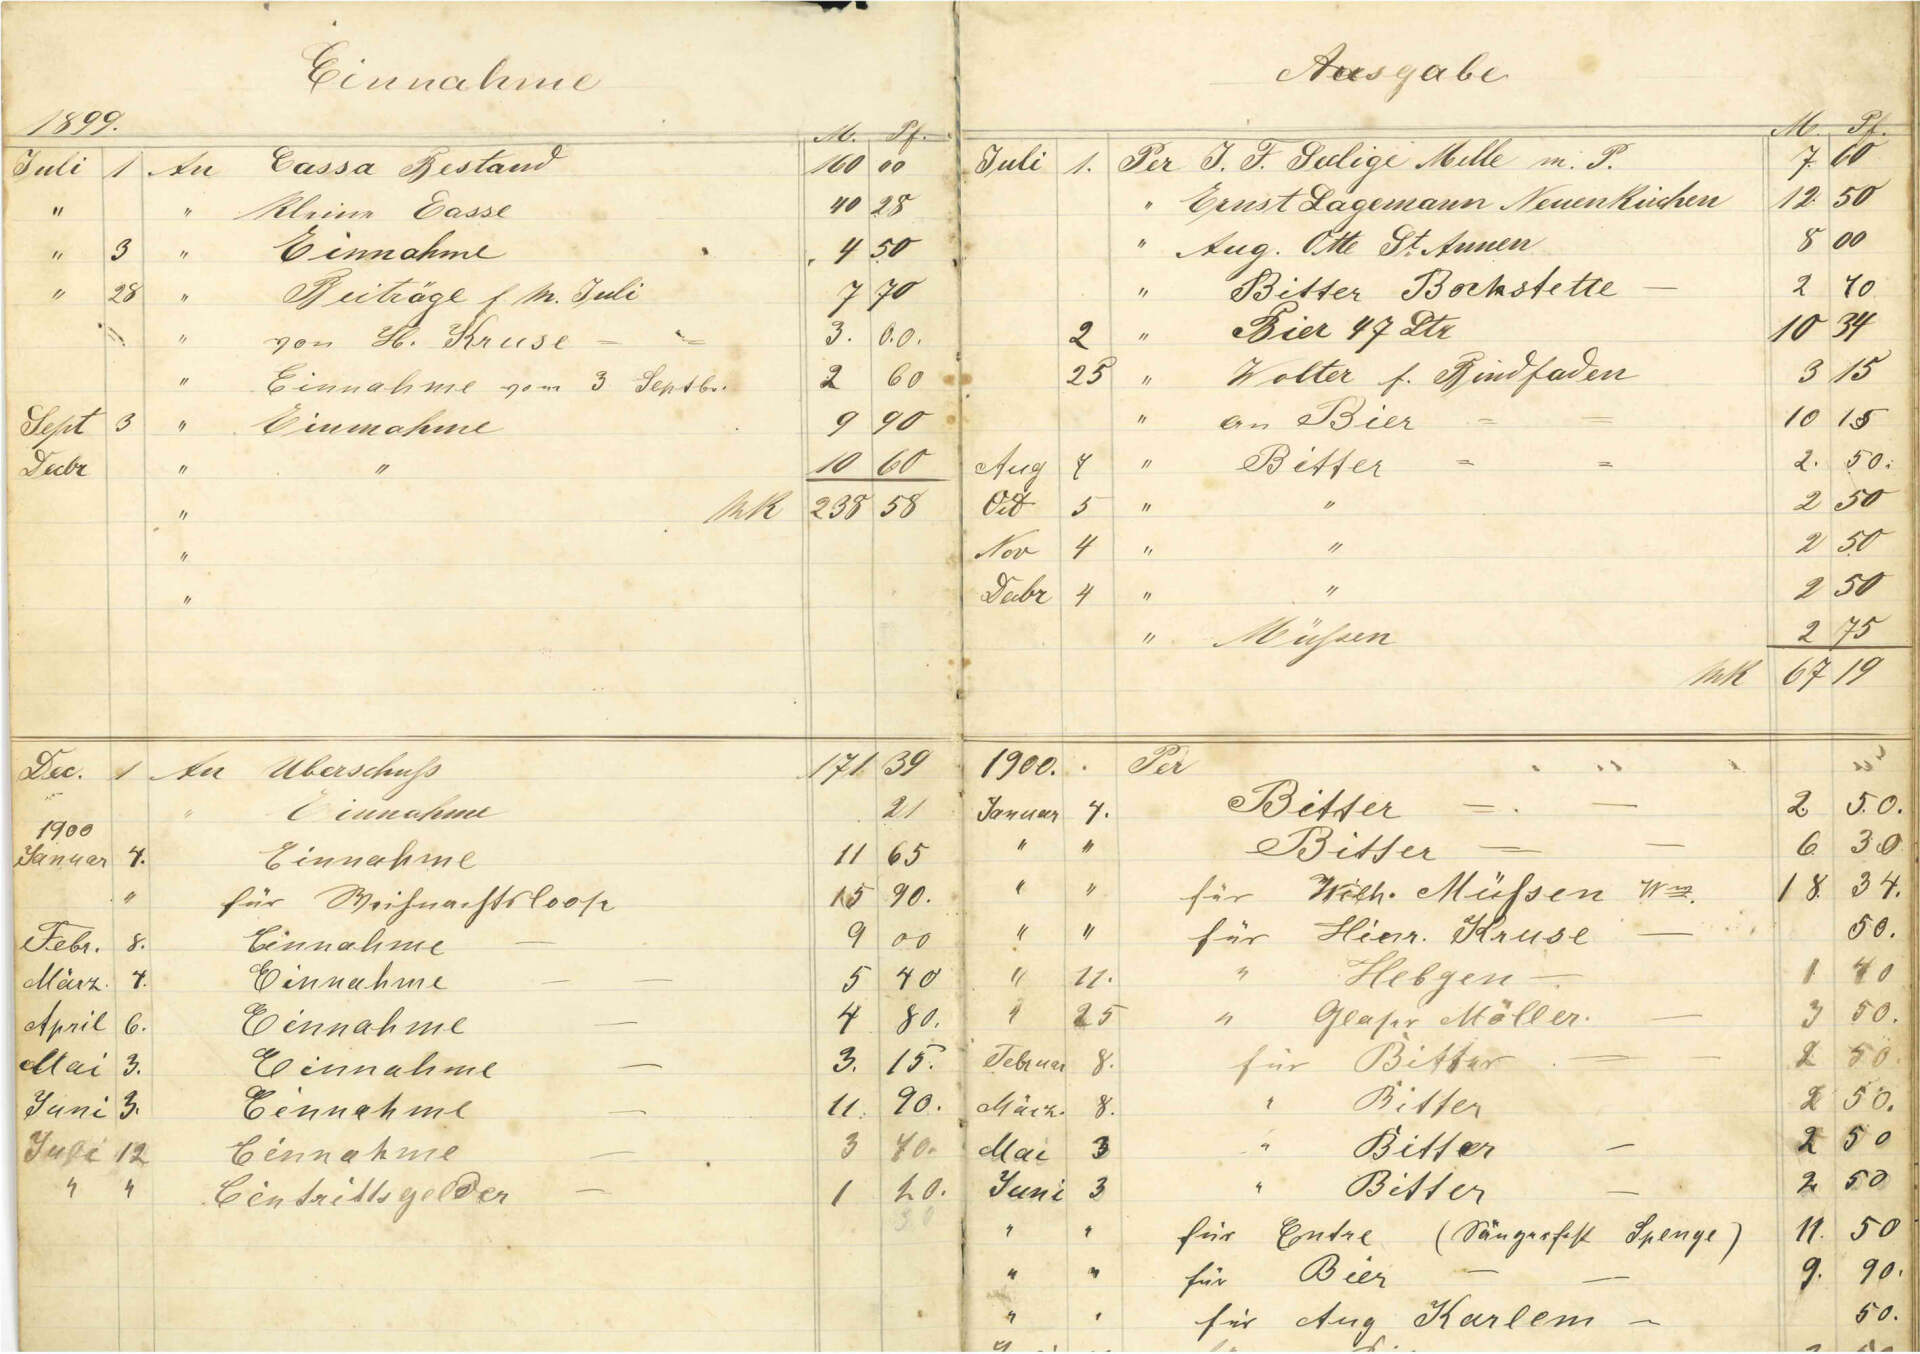 Einnahme
1899.
M. Pf.
Juli 1 An Cassa Bestand 160 00
" " Kleine Casse 40 28
" 3 " Einnahme 4 50
" 28 " Beiträge f. M. Juli 7 70
" " von H. Kruse — = 3. 00.
" Einnahme vom 3 Septbr. 2 60
Sept 3 " Einnahme 9 90
Dcbr " " 10 60
" MK 238 58
"
"
Dec. 1 An Überschuss 171 39
" Einnahme 21
1900
Januar 4. Einnahme 11 65
" für Weihnachtsloose 15 90.
Febr. 8. Einnahme — 9 00
März. 4. Einnahme — — 5 40
April 6. Einnahme — 4 80.
Mai 3. Einnahme — 3. 15.
Juni 3. Einnahme — 11. 90.
Juli 12 Einnahme — 3 40.
" " Eintrittsgelder — 1 20.
30
Ausgabe
M. Pf.
Juli 1. Per J. F. Selige Melle m. P. 7. 60
" Ernst Lagemann Neuenkirchen 12. 50
" Aug. Otte St. Annen 8 00
" Bitter Bockstette — 2 40
2 " Bier 47 Ltr 10 34
25 " Wolter f. Bindfaden 3 15
" an Bier = = 10 15
Aug 4 " Bitter = = 2. 50.
Oct 5 " " 2 50
Nov 4 " " 2 50
Dcbr 4 " " 2 50
" Müssen 2 75
MK 67 19
1900. Per
Januar 4. Bitter = — 2. 50.
" " Bitter = — 6 30
" " für Wilh. Müssen Ww. 18. 34.
" " für Hinr. Kruse — 50.
" 11. " Hebgen — 1 40
" 25 " Glaser Möller. — 3 50.
Februar 8. für Bitter — — 2 50.
März. 8. " Bitter 2 50.
Mai 3 " Bitter — 2 50
Juni 3 " Bitter — 2 50
" " für Entre (Sängerfest Spenge) 11. 50
" " für Bier — — 9. 90.
" " für Aug Karlem — 50.